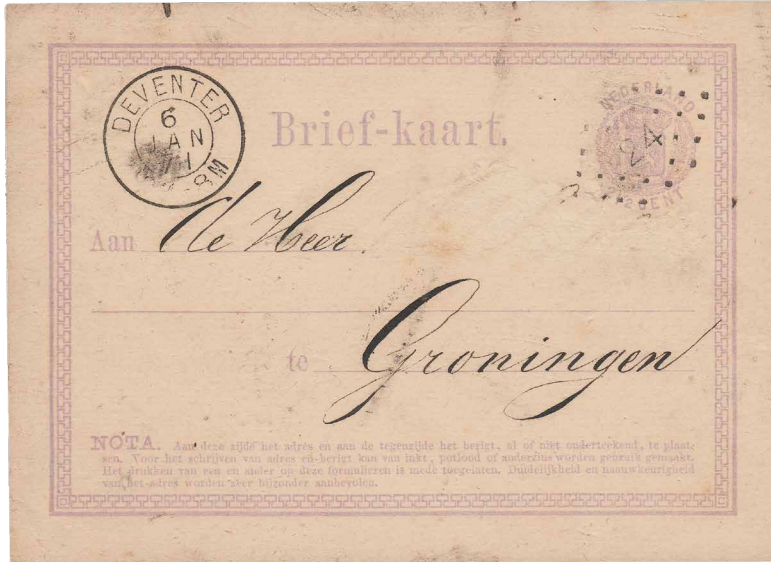 DEVENTER
6
JAN
71
-8M
NEDERLAND
Brief-kaart.
CENT
Aan de Heer
te Groningen
NOTA. Aan deze zijde het adres en aan de tegenzijde het berigt, al of niet onderteekend, te plaat-
sen. Voor het schrijven van adres en berigt kan van inkt, potlood of anderzins worden gebruik gemaakt.
Het drukken van een en ander op deze formulieren is mede toegelaten. Duidelijkheid en naauwkeurigheid
van het adres worden zeer bijzonder aanbevolen.